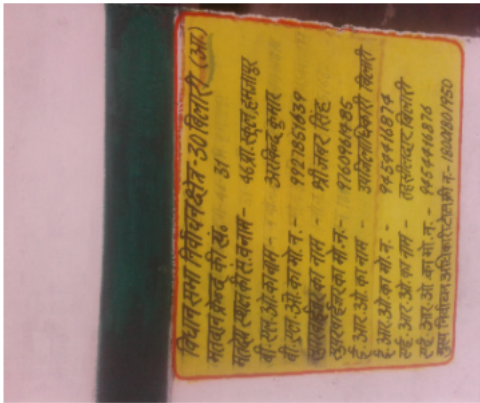 विधान सभा निर्वाचन क्षेत्र- 30 बिलारी (आ.)
मतदान केन्द्र की सं. 31
मतदेय स्थल की सं. व नाम - 46 प्रा. स्कूल,
बी.एल.ओ. का नाम - अरविन्द कुमार
बी.एल.ओ. का मो. न. - 9927851639
सुपरवाईजर का नाम - श्री जबर सिंह
सुपरवाईजर का मो.न. - 9760961485
ई.आर.ओ. का नाम - उपजिलाधिकारी बिलारी
ई.आर.ओ का मो.न. - 9454416874
एई.आर.ओ का नाम - तहसीलदार, बिलारी
एई.आर.ओ का मो.न. - 9454416876
मुख्य निर्वाचन अधिकारी टोल फ्री न.- 18001801950